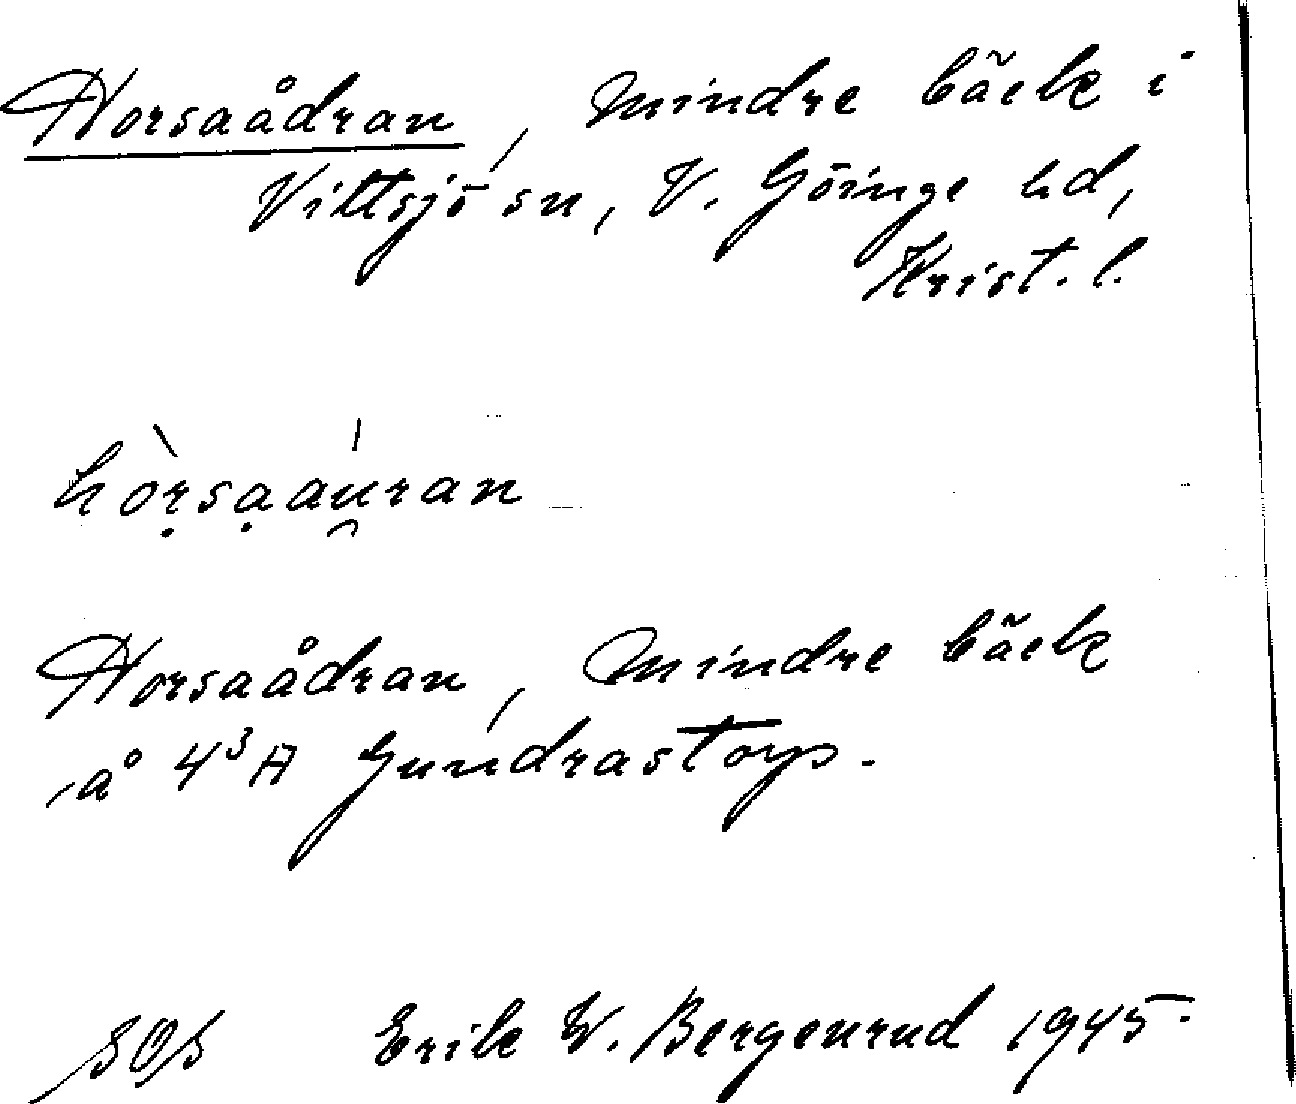 Horsaådran, mindre bäck i
Vittsjö sn, V. Göinge hd,
Krist. l.
hòrsaáuran
Horsaådran, mindre bäck
å 4³A Gundrastorp.
SOS Erik W. Bergenrud 1945.